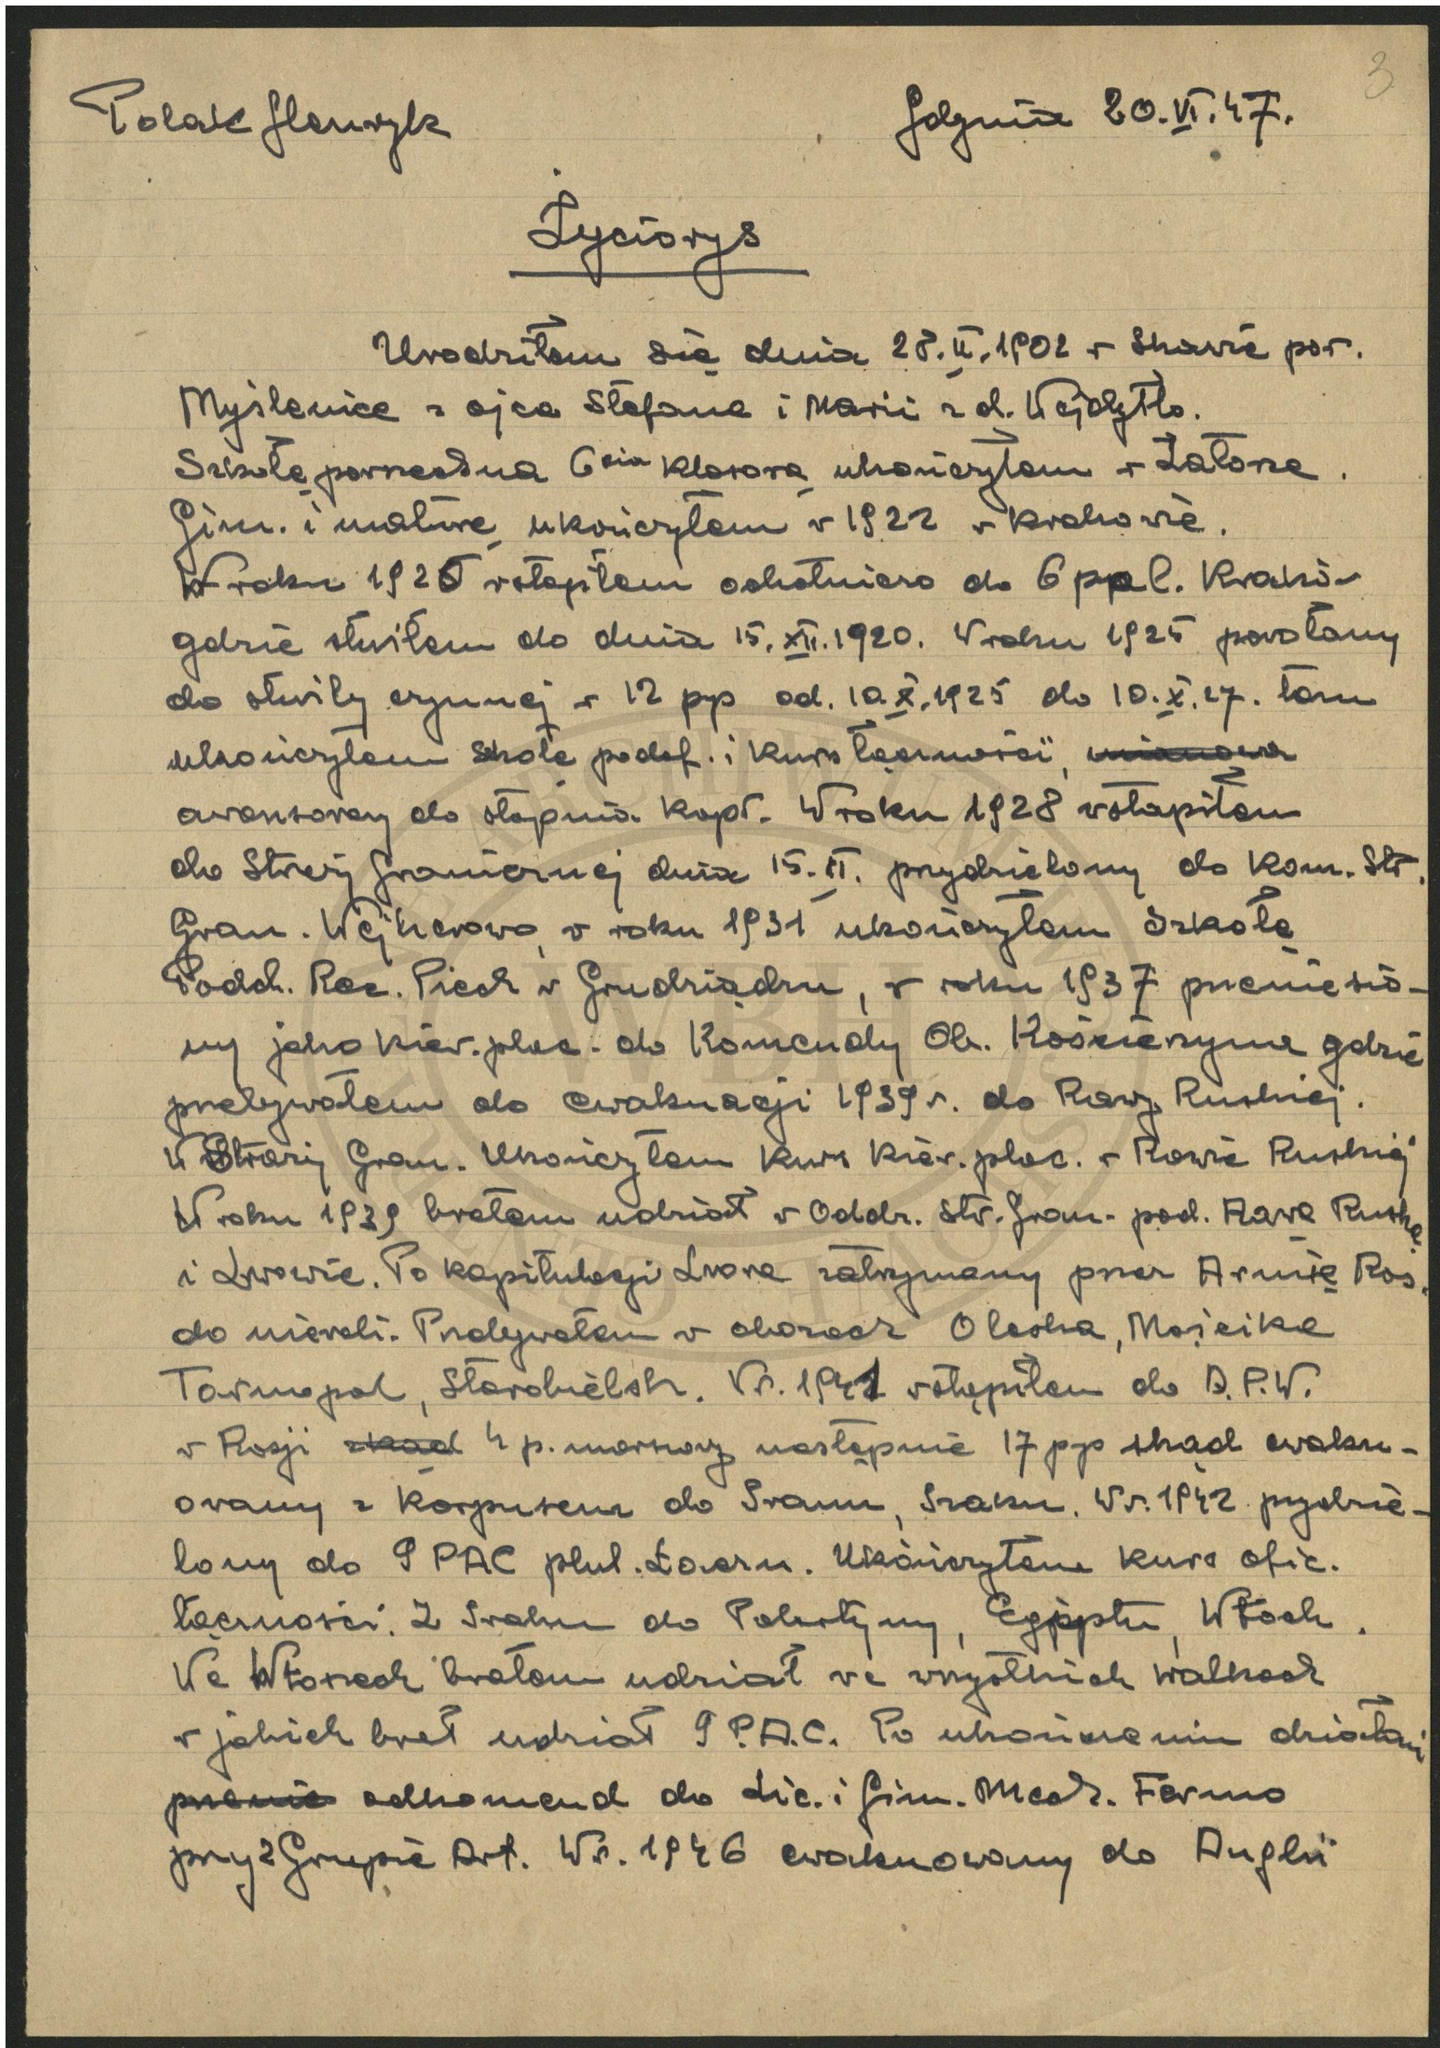 3
Polak Henryk Gdynia 20.VI.47.
Życiorys
Urodziłem się dnia 28.II.1902 w Skawie pow.
Myślenice z ojca Stefana i Marii z d. Wojdyło.
Szkołę powszechną 6cio klasową ukończyłem w
Gim. i maturę ukończyłem w 1922 w Krakowie.
W roku 1920 wstąpiłem ochotniczo do 6 ppl. Kraków
gdzie służiłem do dnia 15.XII.1920. W roku 1925 powołany
do służby czynnej w 12 pp od. 10.X.1925 do 10.X.27. tam
ukończyłem skołę podof. i kurs łączności, mianowa
awansowany do stopnia kapr. W roku 1928 wstąpiłem
do Straży Granicznej dnia 15.VI. przydzielony do Kom. Str.
Gran. Wejherowo, w roku 1931 ukończyłem Szkołę
Podch. Rez. Piech w Grudziądzu, w roku 1937 przeniesio-
ny jako kier. plac. do Komendy Ob. Kościerzyna gdzie
przebywałem do ewakuacji 1939 r. do Rawy Ruskiej.
W Straży Gran. Ukończyłem kurs kier. plac. w Rawie Ruskiej
W roku 1939 brałem udział w Oddz. Str. Gran. pod. Rawą Ruską
i Lwowie. Po kapitulacji Lwowa zatrzymany przez Armię Ros.
do niewoli. Przebywałem w obozach Oleska,
Tarnopol, Starobielsk. W r. 1941 wstąpiłem do A.P.W.
w Rosji skąd 4 p. marszowy następnie 17 pp skąd ewaku-
owany z Korpusem do Iranu, Iraku. W r. 1942 przydzie-
lony do 9 PAC plut. Łączn. Ukończyłem kurs ofic.
łączności. Z Iraku do Palestyny, Egiptu, Włoch.
We Włoszech brałem udział we wszystkich walkach
w jakich brał udział 9 P.A.C. Po ukończeniu działań
przenie odkomend do Lic. i Gim. Mech. Fermo
przy 2 Grupie Art. W r. 1946 ewakuowany do Anglii
WBH